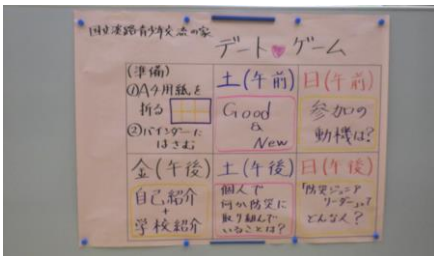 国立淡路青少年交流の家
デート♥ゲーム
(準備)
①A4用紙を
折る
②バインダーに
はさむ
土(午前)
Good
&
New
日(午前)
参加の
動機は?
金(午後)
自己紹介
+
学校紹介
土(午後)
個人で
何か防災に
取り組んで
いることは?
日(午後)
「防災ジュニア
リーダー」って
どんな人?